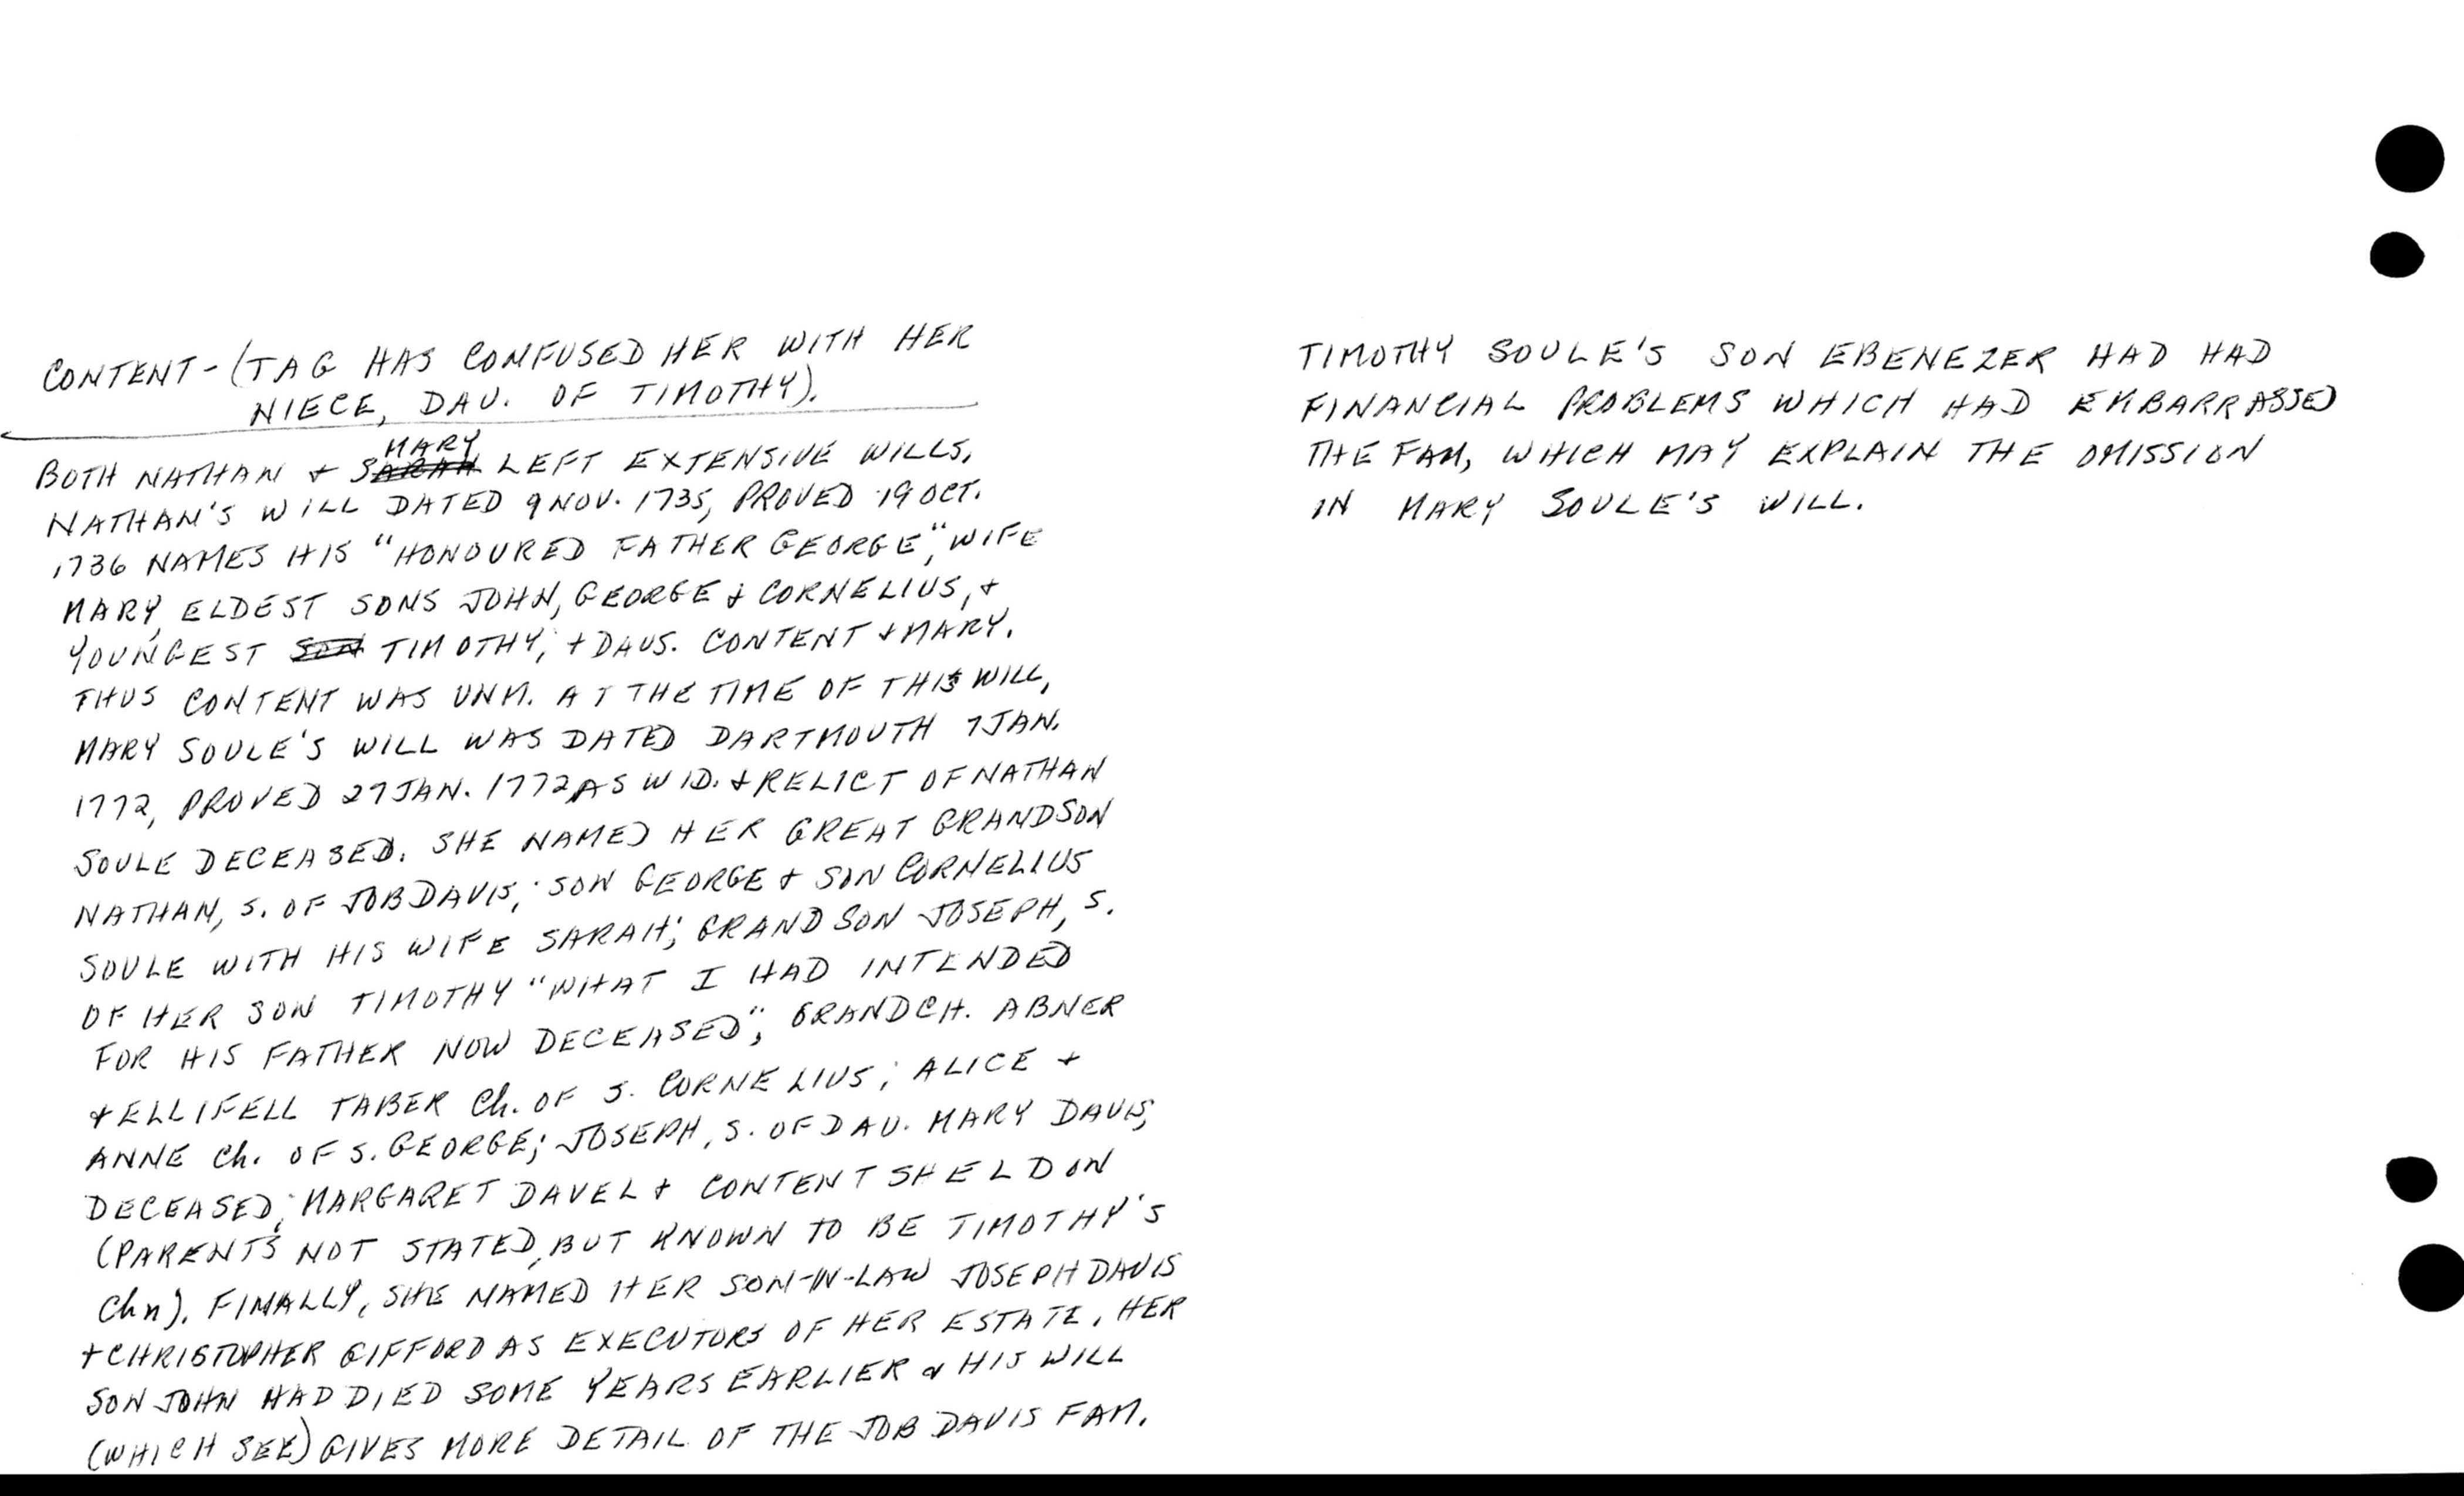 CONTENT - (TAG HAS CONFUSED HER WITH HER
NIECE, DAU. OF TIMOTHY).
MARY
BOTH NATHAN & SARAH LEFT EXTENSIVE WILLS.
NATHAN'S WILL DATED 9 NOV. 1735, PROVED 19 OCT.
1736 NAMES HIS "HONOURED FATHER GEORGE", WIFE
MARY, ELDEST SONS JOHN, GEORGE & CORNELIUS, &
YOUNGEST SON TIMOTHY; & DAUS. CONTENT & MARY.
THUS CONTENT WAS UNM. AT THE TIME OF THIS WILL,
MARY SOULE'S WILL WAS DATED DARTMOUTH 7 JAN.
1772, PROVED 27 JAN. 1772 AS WID. & RELICT OF NATHAN
SOULE DECEASED. SHE NAMED HER GREAT GRANDSON
NATHAN, S. OF JOB DAVIS; SON GEORGE & SON CORNELIUS
SOULE WITH HIS WIFE SARAH; GRANDSON JOSEPH, S.
OF HER SON TIMOTHY "WHAT I HAD INTENDED
FOR HIS FATHER NOW DECEASED"; GRANDCH. ABNER
& ELLIFELL TABER Ch. OF S. CORNELIUS; ALICE &
ANNE Ch. OF S. GEORGE; JOSEPH, S. OF DAU. MARY DAVIS,
DECEASED; MARGARET DAVEL & CONTENT SHELDON
(PARENTS NOT STATED, BUT KNOWN TO BE TIMOTHY'S
Chn). FINALLY, SHE NAMED HER SON-IN-LAW JOSEPH DAVIS
& CHRISTOPHER GIFFORD AS EXECUTORS OF HER ESTATE. HER
SON JOHN HAD DIED SOME YEARS EARLIER & HIS WILL
(WHICH SEE) GIVES MORE DETAIL OF THE JOB DAVIS FAM.
TIMOTHY SOULE'S SON EBENEZER HAD HAD
FINANCIAL PROBLEMS WHICH HAD EMBARRASSED
THE FAM, WHICH MAY EXPLAIN THE OMISSION
IN MARY SOULE'S WILL.